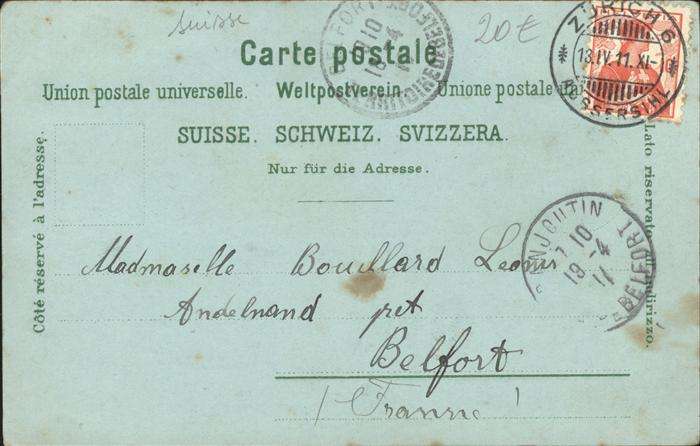 Suisse
20€
Carte postale
Union postale universelle. Weltpostverein. Unione postale
SUISSE. SCHWEIZ. SVIZZERA.
Nur für die Adresse.
Côté réservé à l'adresse.
Lato riservato all'indirizzo.
ZÜRICH 6
13.IV.11.XI-
AUSSERSIHL
BELFORT
DANJOUTIN
7 10
19 -4
11
BELFORT
Madmaselle Bouillard Leonir
Andelnand pret
Belfort
(Franne)